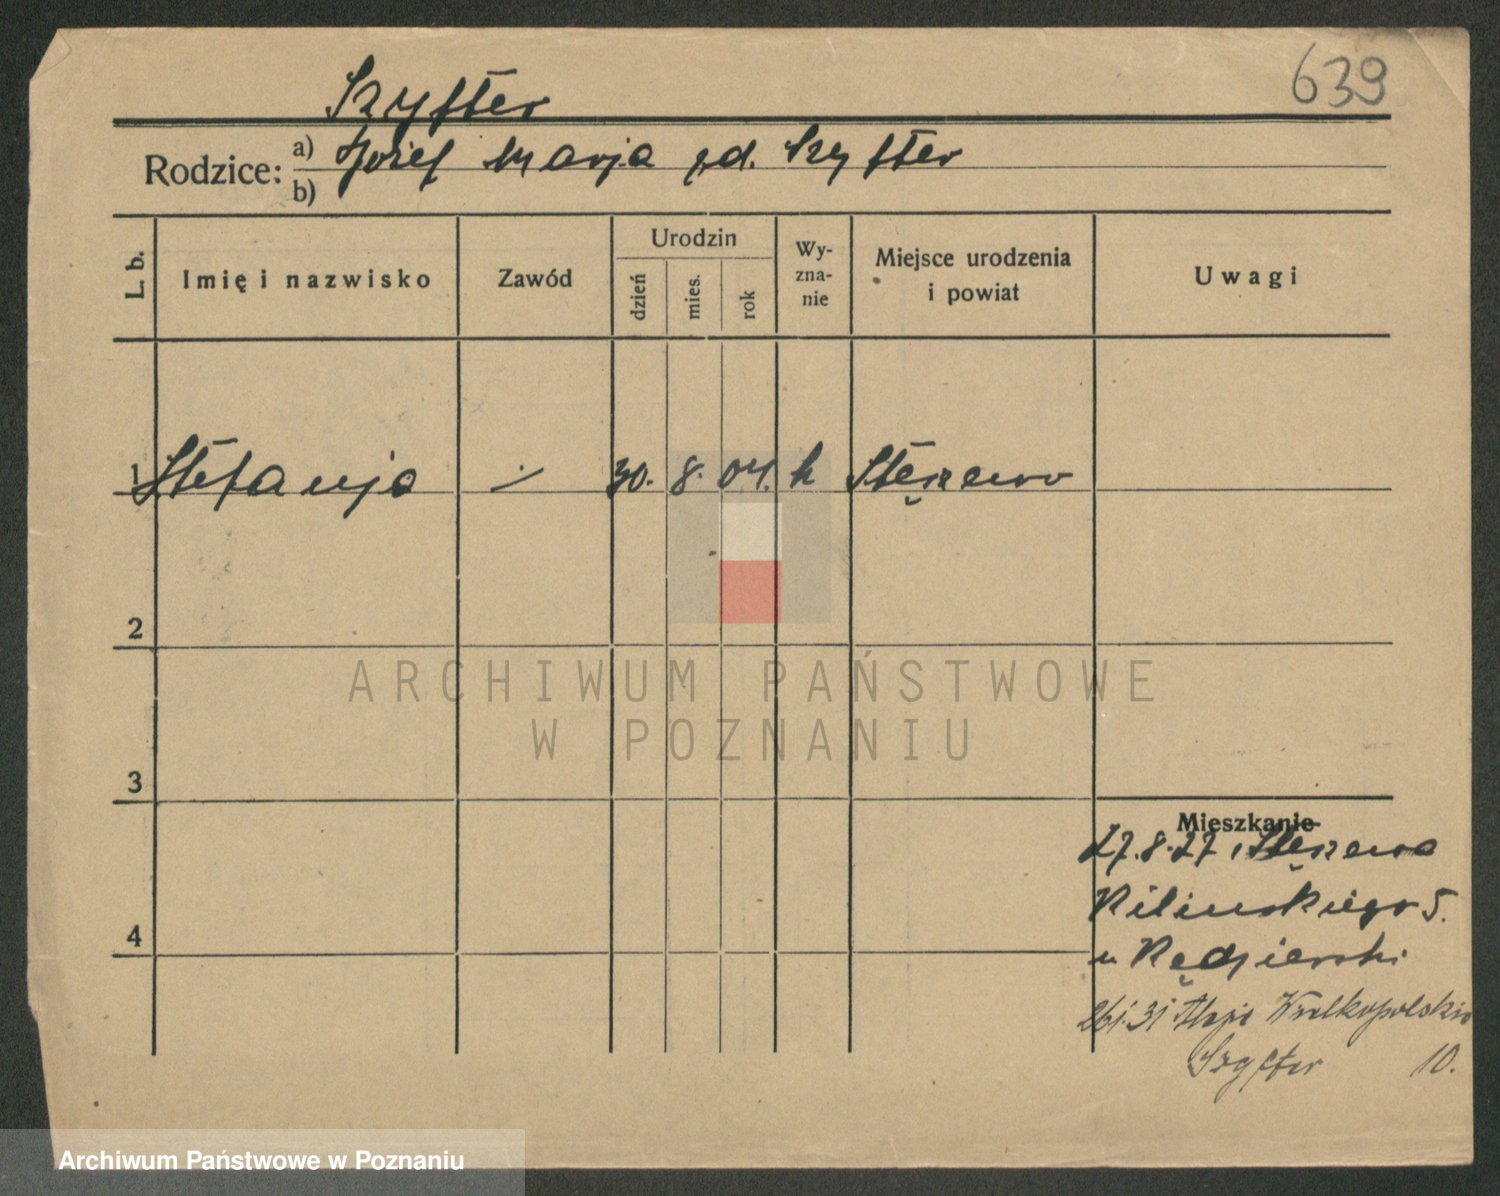 639
Szyfter
Rodzice: a) Józef Marja zd. Szyfter
b)
L. b.
Imię i nazwisko
Zawód
Urodzin
dzień
mies.
rok
Wy-
zna-
nie
Miejsce urodzenia
i powiat
Uwagi
1 Stefanja ./. 30. 8. 04. k Stęszewo
2
3
4
Mieszkanie
27.8.27 Stęszewa
Kilinskiego 5.
u Kędzierski
31 Wielkopolskie
Szyfter 10.
ARCHIWUM PAŃSTWOWE
W POZNANIU
Archiwum Państwowe w Poznaniu